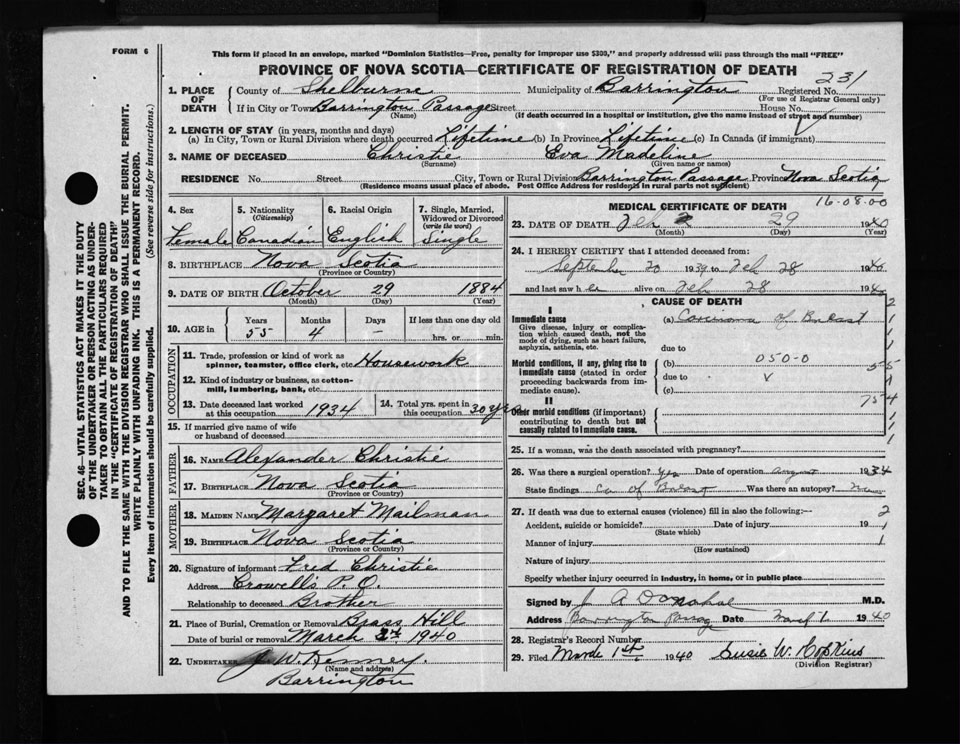 FORM 6
This form if placed in an envelope, marked "Dominion Statistics—Free, penalty for improper use $300," and properly addressed will pass through the mail "FREE"
PROVINCE OF NOVA SCOTIA—CERTIFICATE OF REGISTRATION OF DEATH
231
1. PLACE OF DEATH
County of Shelburne Municipality of Barrington Registered No.
(For use of Registrar General only)
If in City or Town Barrington Passage Street House No.
(Name) (If death occurred in a hospital or institution, give the name instead of street and number)
2. LENGTH OF STAY (in years, months and days)
(a) In City, Town or Rural Division where death occurred Lifetime (b) In Province Lifetime (c) In Canada (if immigrant)
3. NAME OF DECEASED Christie Eva Madeline
(Surname) (Given name or names)
RESIDENCE No. Street City, Town or Rural Division Barrington Passage Province Nova Scotia
(Residence means usual place of abode. Post Office Address for residents in rural parts not sufficient)
4. Sex Female
5. Nationality (Citizenship) Canadian
6. Racial Origin English
7. Single, Married, Widowed or Divorced (write the word) Single
8. BIRTHPLACE Nova Scotia
(Province or Country)
9. DATE OF BIRTH October 29 1884
(Month) (Day) (Year)
10. AGE in Years Months Days If less than one day old
55 4 – hrs. or min.
OCCUPATION
11. Trade, profession or kind of work as spinner, teamster, office clerk, etc. Housework
12. Kind of industry or business, as cotton-mill, lumbering, bank, etc.
13. Date deceased last worked at this occupation 1934
14. Total yrs. spent in this occupation 30 yrs
15. If married give name of wife or husband of deceased
FATHER
16. NAME Alexander Christie
17. BIRTHPLACE Nova Scotia
(Province or Country)
MOTHER
18. MAIDEN NAME Margaret Mailman
19. BIRTHPLACE Nova Scotia
(Province or Country)
20. Signature of informant Fred Christie
Address Crowell's P.O.
Relationship to deceased Brother
21. Place of Burial, Cremation or Removal Brass Hill
Date of burial or removal March 2nd 1940
22. UNDERTAKER J. W. Kenney.
(Name and address)
Barrington
MEDICAL CERTIFICATE OF DEATH 16-08-00
23. DATE OF DEATH Feb 29 1940
(Month) (Day) (Year)
24. I HEREBY CERTIFY that I attended deceased from:
September 20 1939 to Feb 28 1940
and last saw her alive on Feb 28 1940
CAUSE OF DEATH
I
Immediate cause (a) Carcinoma of Breast
Give disease, injury or complication which caused death, not the mode of dying, such as heart failure, asphyxia, asthenia, etc.
due to
Morbid conditions, if any, giving rise to immediate cause (stated in order proceeding backwards from immediate cause).
(b) 050-0
due to
(c)
II
Other morbid conditions (if important) contributing to death but not causally related to immediate cause.
25. If a woman, was the death associated with pregnancy?
26. Was there a surgical operation? Yes Date of operation August 1934
State findings Ca of Breast Was there an autopsy? no
27. If death was due to external causes (violence) fill in also the following:— 2
Accident, suicide or homicide? Date of injury 19 1
(State which)
Manner of injury 1
(How sustained)
Nature of injury
Specify whether injury occurred in industry, in home, or in public place
Signed by J A Donahoe M.D.
Address Barrington Passage Date 1940
28. Registrar's Record Number
29. Filed March 1st 1940 Susie W. Hopkins
(Division Registrar)
SEC. 46—VITAL STATISTICS ACT MAKES IT THE DUTY
OF THE UNDERTAKER OR PERSON ACTING AS UNDER-
TAKER TO OBTAIN ALL THE PARTICULARS REQUIRED
IN THE "CERTIFICATE OF REGISTRATION OF DEATH"
AND TO FILE THE SAME WITH THE DIVISION REGISTRAR WHO SHALL ISSUE THE BURIAL PERMIT.
WRITE PLAINLY WITH UNFADING INK. THIS IS A PERMANENT RECORD.
Every item of information should be carefully supplied. (See reverse side for instructions.)